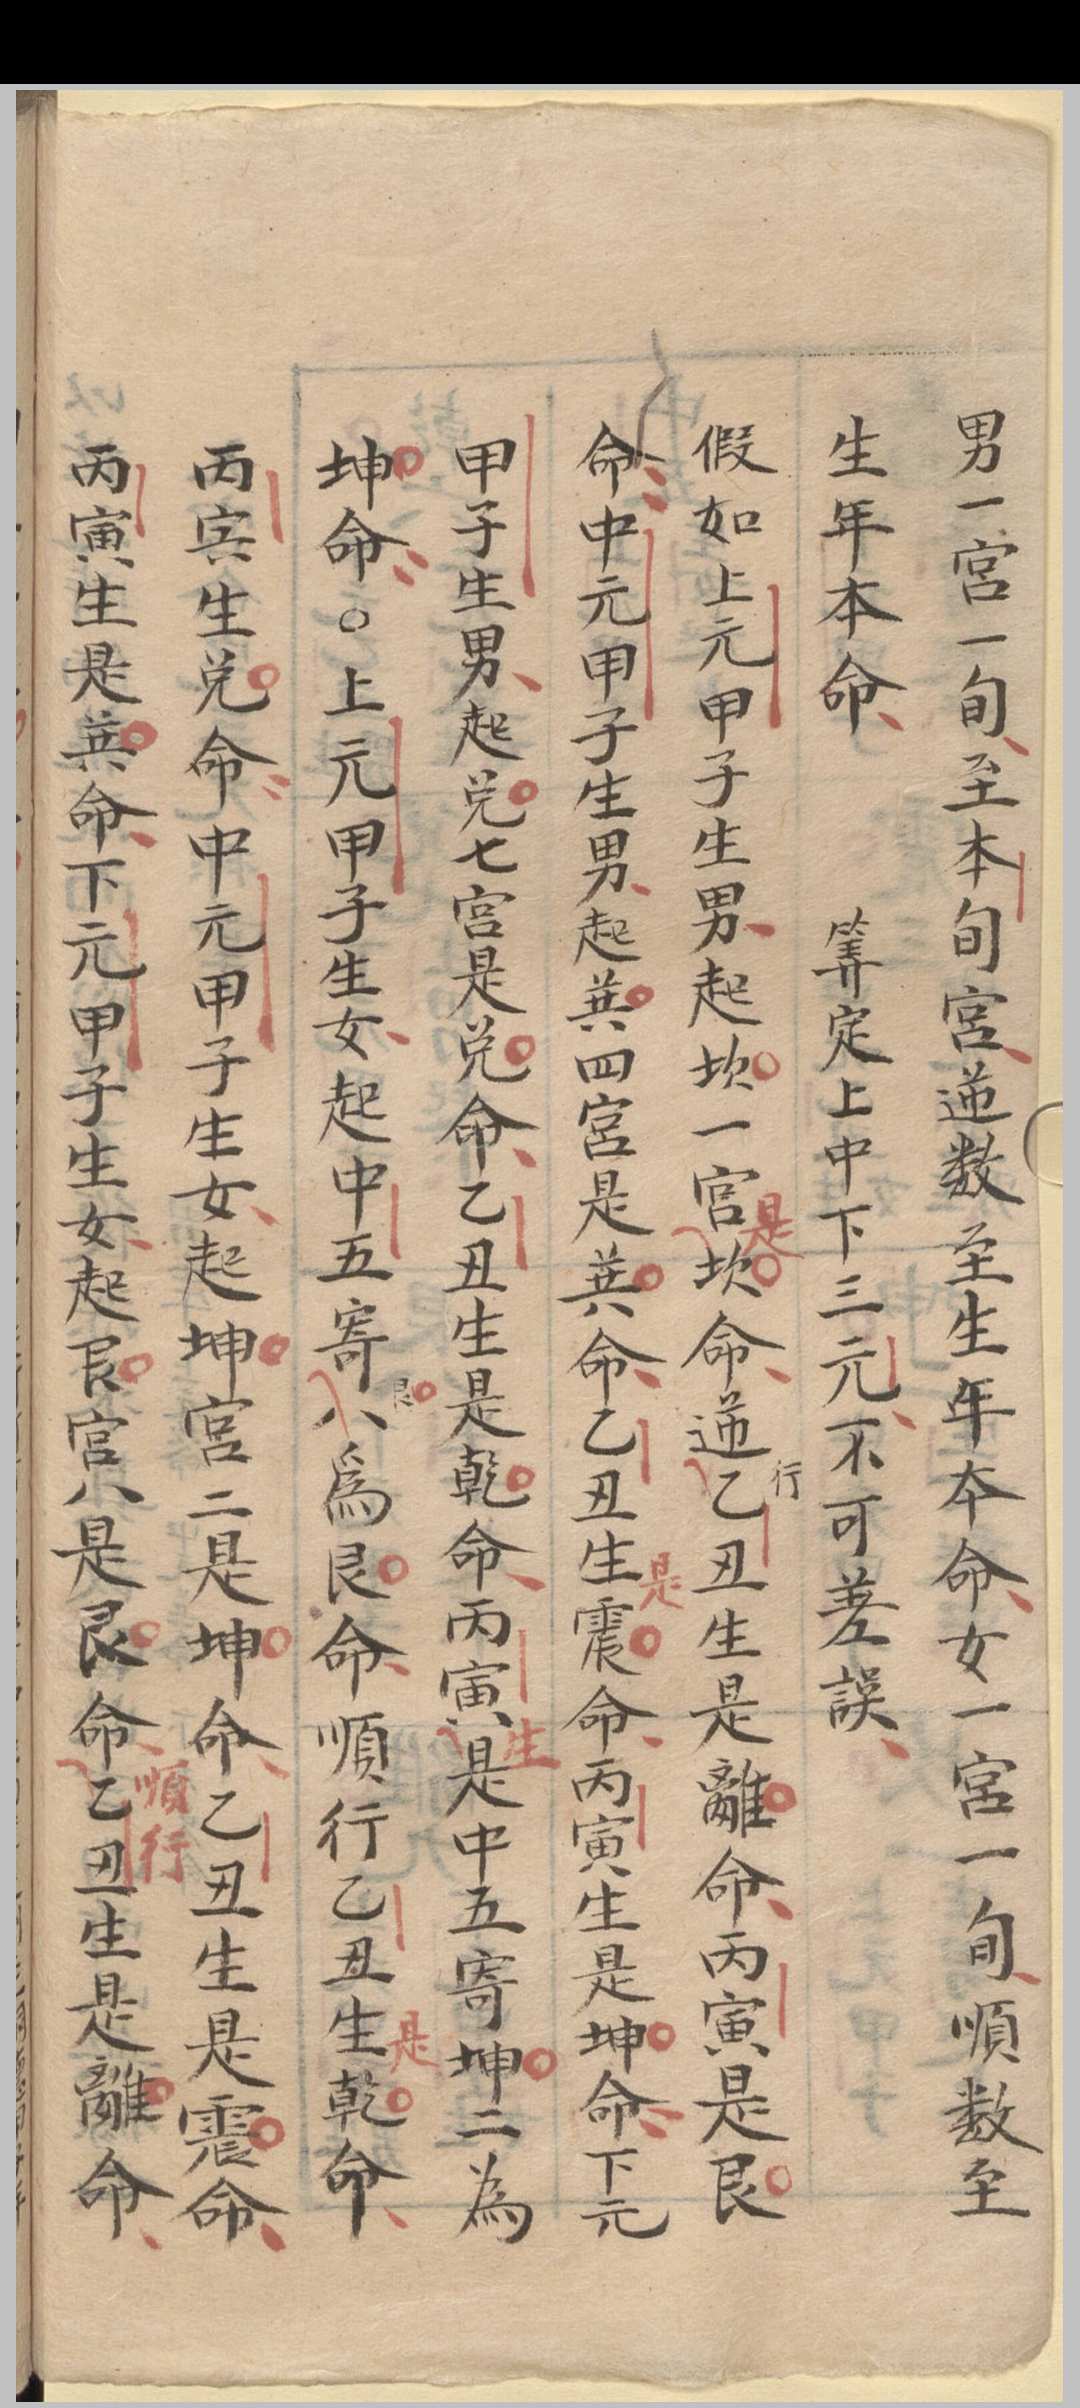 男一宮一旬至本旬宮逆数至生年本命女一宮一旬順数至
生年本命 筭定上中下三元不可差誤
假如上元甲子生男起坎一宮是坎命逆行乙丑生是離命丙寅是艮
命中元甲子生男起巽四宮是巽命乙丑生是震命丙寅生是坤命下元
甲子生男起兑七宮是兑命乙丑生是乾命丙寅生是中五寄坤二為
坤命○上元甲子生女起中五寄艮八為艮命順行乙丑生是乾命
丙寅生兑命中元甲子生女起坤宮二是坤命乙丑生是震命
丙寅生是巽命下元甲子生女起艮宮八是艮命順行乙丑生是離命